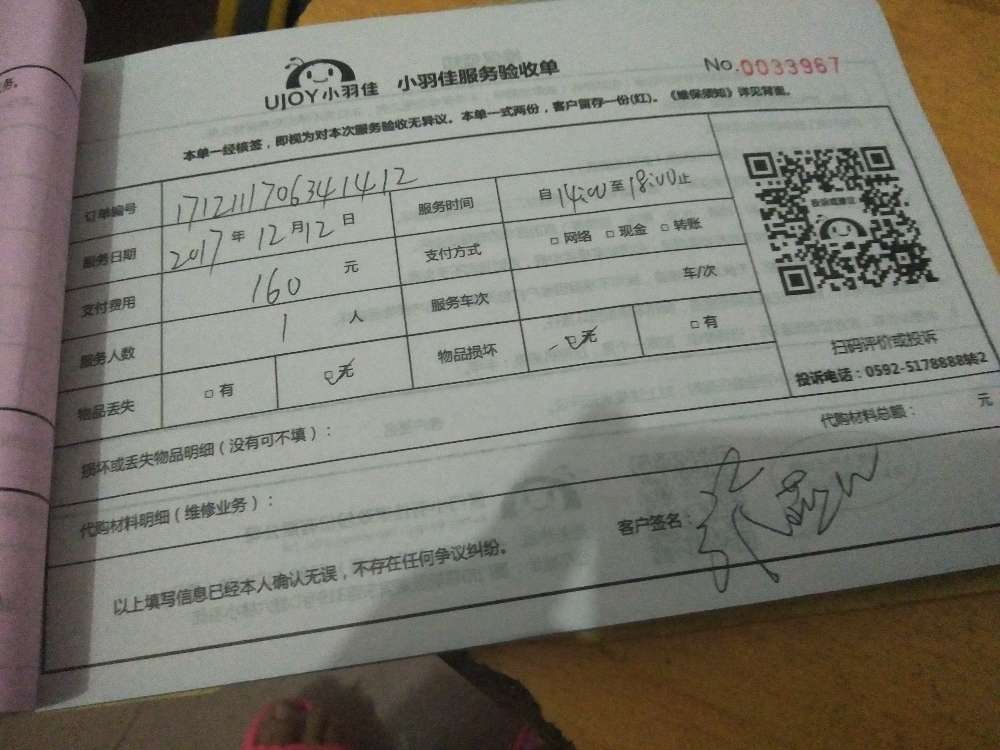 务。
UJOY小羽佳 小羽佳服务验收单 No.0033967
本单一经核签，即视为对本次服务验收无异议。本单一式两份，客户留存一份(红)。《维保须知》详见背面。
订单编号 171211170634 1412 服务时间 自14:00至18:00止
服务日期 2017年12月12日 支付方式 □ 网络 □ 现金 □ 转账
支付费用 160 元 服务车次 车/次
服务人数 1 人 物品损坏 □无 □ 有
物品丢失 □ 有 □无
投诉或建议
扫码评价或投诉
投诉电话：0592-5178888转2
损坏或丢失物品明细（没有可不填）：
代购材料总额： 元
代购材料明细（维修业务）：
以上填写信息已经本人确认无误，不存在任何争议纠纷。
客户签名：张